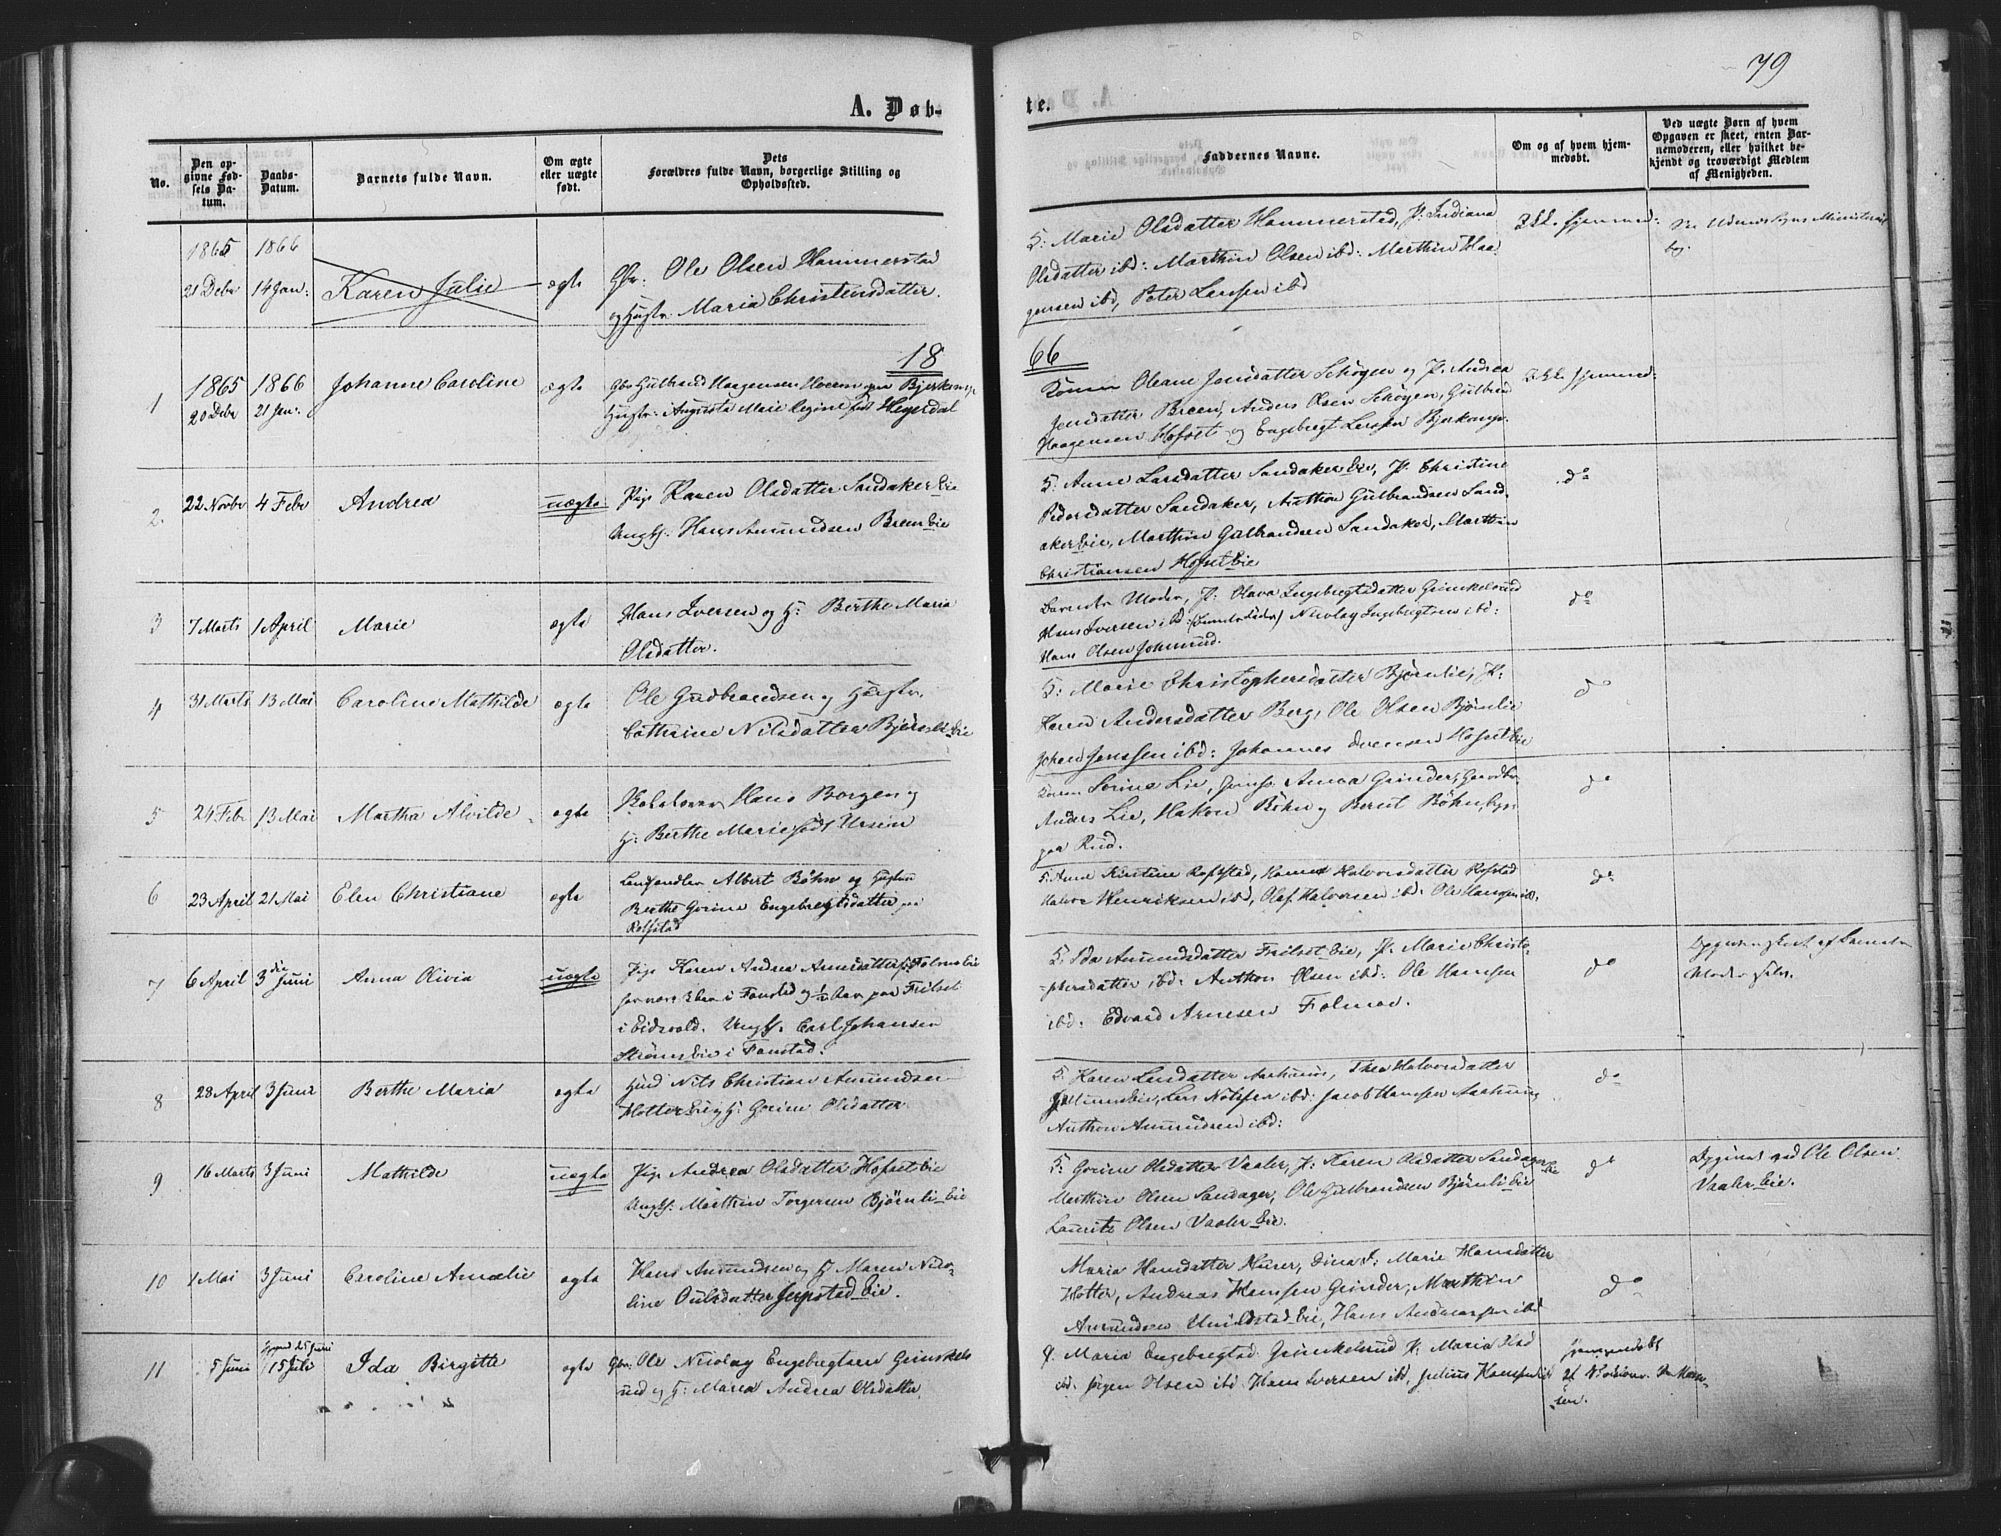 79
A. Døb-
te.
No.
Den op-
givne Fød-
sels Da-
tum.
Daabs-
Datum.
Barnets fulde Navn.
Om ægte
eller uægte
født.
Dets
Forældres fulde Navn, borgerlige Stilling og
Opholdssted.
Faddernes Navne.
Om og af hvem hjem-
medøbt.
Ved uægte Børn af hvem
Opgaven er skeet, enten Bar-
nemoderen, eller hvilket be-
kjendt og troværdigt Medlem
af Menigheden.
1865 1866
21 Debr 14 Jan: Karen Julie ægte Gbr: Ole Olsen Hammerstad
og Hustr: Maria Christensdatter.
G: Marie Olsdatter Hammerstad, P: Indiana
Olsdatter ibd: Marthin Olsen ibd: Marthin Haa
gensen ibd, Peter Larssen ibd
Ikke hjemmed:
18 66
1 1865 1866 Johanne Caroline ægte Gbr Gulbrand Haagensen
20 Debr 21 Jan: Hustr: Augusta Marie Regine født Hegerdal
Konen Oleane Jensdatter Schøyen og P. Andrea
Jensdatter Breen, Anders Olsen Schøyen, Gulbrand
Haagensen Hofset og Engebregt Larssen Bjerkeng.
Ikke hjemmed:
2. 22 Novbr 4 Febr Andrea uægte Pige Karen Olsdatter Sandaker Eie
Ungk: Hans Amundsen Breen Eie
G: Anne Larsdatter Sandaker Eie, P: Christine
Pedersdatter Sandaker, Anthon Gulbrandsen Sand
aker Eie, Marthin Gulbrandsen Sandaker, Marthin
Christiansen Hofset Eie
do
3 7 Marts 1 April Marie ægte Hans Iversen og H: Berthe Maria
Olsdatter.
Barnets Moder, P: Olava Ingebregtsdatter Grinkelsrud
Hans Iversen ibd: (Barnets Fader) Nicolay Ingebregtsen ibd:
Hans Olsen
do
4 31 Marts 13 Mai Caroline Mathilde ægte Ole Gudbrandsen og Hustr.
Cathrine Nilsdatter Eie
G: Marie Christophersdatter Bjørnlie, P:
Karen Andersdatter Berg, Ole Olsen Bjørnlie
Johan Jenssen ibd: Johannes Svensen Hofset Eie
do
5 24 Febr 13 Mai Martha Alvilde ægte Skolelærer Hans Borgen og
H: Berthe Marie født Ursin
Konen Serine Lie, Jomfr Anna Grinder, Gaardbr
Anders Lie, Hakon Bøhn og Bernt Bøhn, begge
paa Rud.
do
6 23 April 21 Mai Elen Christiane ægte Landhandler Albert Bøhn og Hustru
Berthe Gorine Engebregtsdatter paa
Rolfstad
G: Anne Kirstine Rolfstad, Hanna Halvorsdatter Rofstad
Henriksen ibd, Olaf Halvorsen ibd: Ole Hansen ibd.
do
7 6 April 3die Juni Anna Olivia uægte Pige Karen Andrea Arnesdatter Folmo Eie
i Fønsted og 1/2 Aar paa Frilset
i Eidsvold. Ungk: Carl Johansen
Strøms Eie i Fønstad.
G: Ida Amundsdatter Frilset Eie, P: Marie Christo-
phersdatter ibd: Anthon Olsen ibd: Ole Hansen
ibd: Edvard Arnesen Folmoe.
do
Opgivende skeet af Barnets
Moder selv.
8 28 April 3 Juni Berthe Maria ægte Hmd Nils Christian Amundsen
Hotter Eie og H: Gorine Olsdatter
G. Karen Larsdatter Aarhuus, Thea Halvorsdatter
Lars Nilssen ibd: Jacob Hanssen Aarhuus
Anthon Amundsen ibd:
do
9 16 Marts 3 Juni Mathilde uægte Pige Andrea Olsdatter Hofset Eie
Ungk: Marthin Torgersen Bjørnli Eie
G: Gorine Olsdatter Vaaler, P: Karen Olsdatter Sandager Eie
Marthin Olsen Sandager, Ole Gulbrandsen Bjørnli Eie
Laurits Olsen Vaaler Eie.
do
Opgivet ved Ole Olsen
Vaaler Eie.
10 1 Mai 3 Juni Caroline Amalie ægte Hans Amundsen og H Maren Nico-
line Eie.
Maria Hansdatter Marie Hansdatter
Hotter, Andreas Hanssen Grinder, Marthin
Amundsen Eie, Hans Andreassen ibd
do
11 5 Juni 15 Juli Ida Birgitte ægte Gbr: Ole Nicolay Engebregtsen Grinkels
rud og H: Maren Andrea Olsdatter
G. Maria Engebregtsd. Grinkelsrud P: Maria Olsd
ibd. Jørgen Olsen ibd Hans Iversen ibd, Julius Hanssen ibd
hjemmedøbt